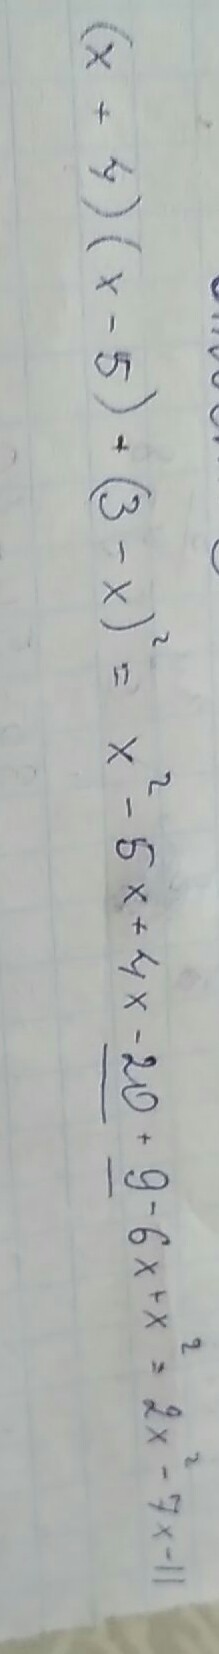 (x + 4)(x - 5) + (3 - x)² = x² - 5x + 4x - 20 + 9 - 6x + x² = 2x² - 7x - 11